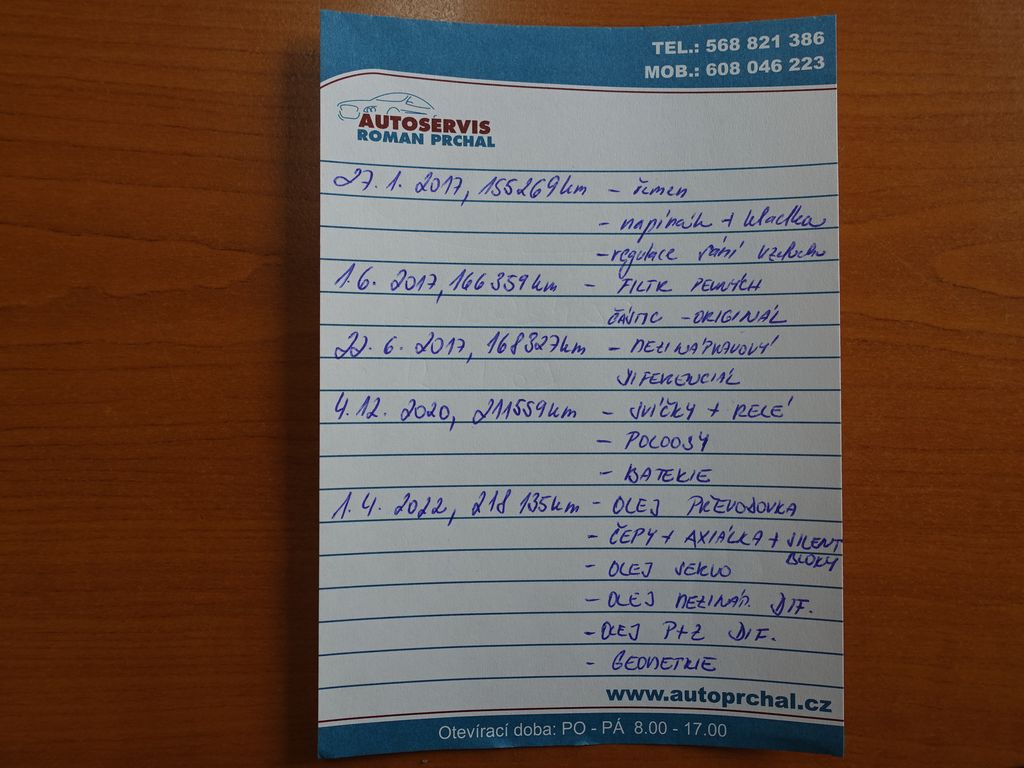 TEL.: 568 821 386
MOB.: 608 046 223
AUTOSERVIS
ROMAN PRCHAL
27. 1. 2017, 155269km - řemen
- napínák + kladka
- regulace sání vzduchu
1. 6. 2017, 166359km - FILTR PEVNÝCH
ČÁSTIC - ORIGINÁL
22. 6. 2017, 168327km - MEZINÁPRAVOVÝ
DIFERENCIÁL
4. 12. 2020, 211559km - SVÍČKY + RELÉ
- POLOOSY
- BATERIE
1. 4. 2022, 218 135km - OLEJ PŘEVODOVKA
- ČEPY + AXIÁLKA + SILENT
BLOKY
- OLEJ SERVO
- OLEJ MEZINÁP. DIF.
- OLEJ P+Z DIF.
- GEOMETRIE
www.autoprchal.cz
Otevírací doba: PO - PÁ 8.00 - 17.00